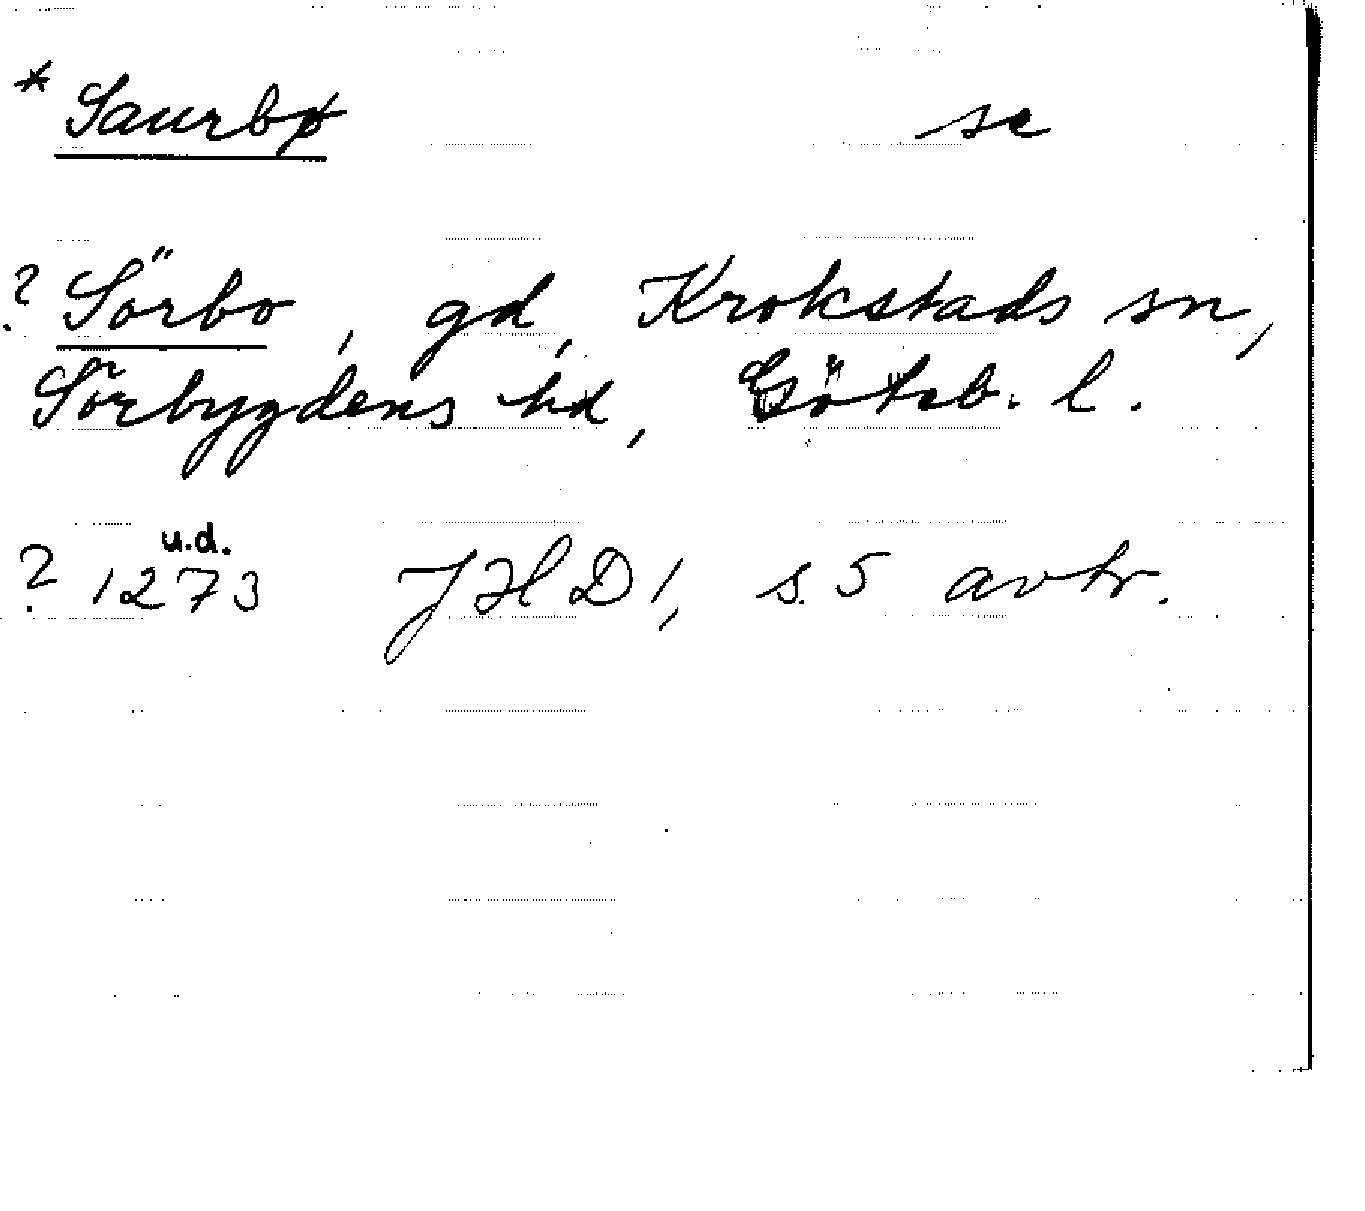 * Saurbø se
? Sörbo, gd, Krokstads sn,
Sörbygdens hd, Götab. l.
u.d.
? 1273 JHD 1, s. 5 avtr.